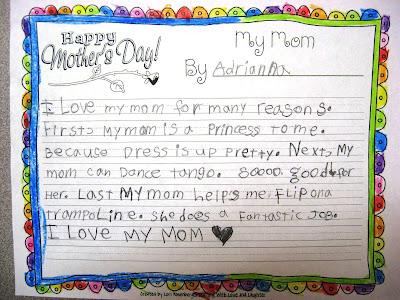 Happy
Mother's Day!
My Mom
By Adrianna
I Love my mom for many reasons.
First, My mom is a Princess to me.
Because Dress is up Pretty. Next, My
mom can Dance tango. Soooo good for
Her. Last MY mom helps me flip on a
trampoline. She does a Fantastic Job.
I Love MY MOM
Created by Lori With Love and Laughter